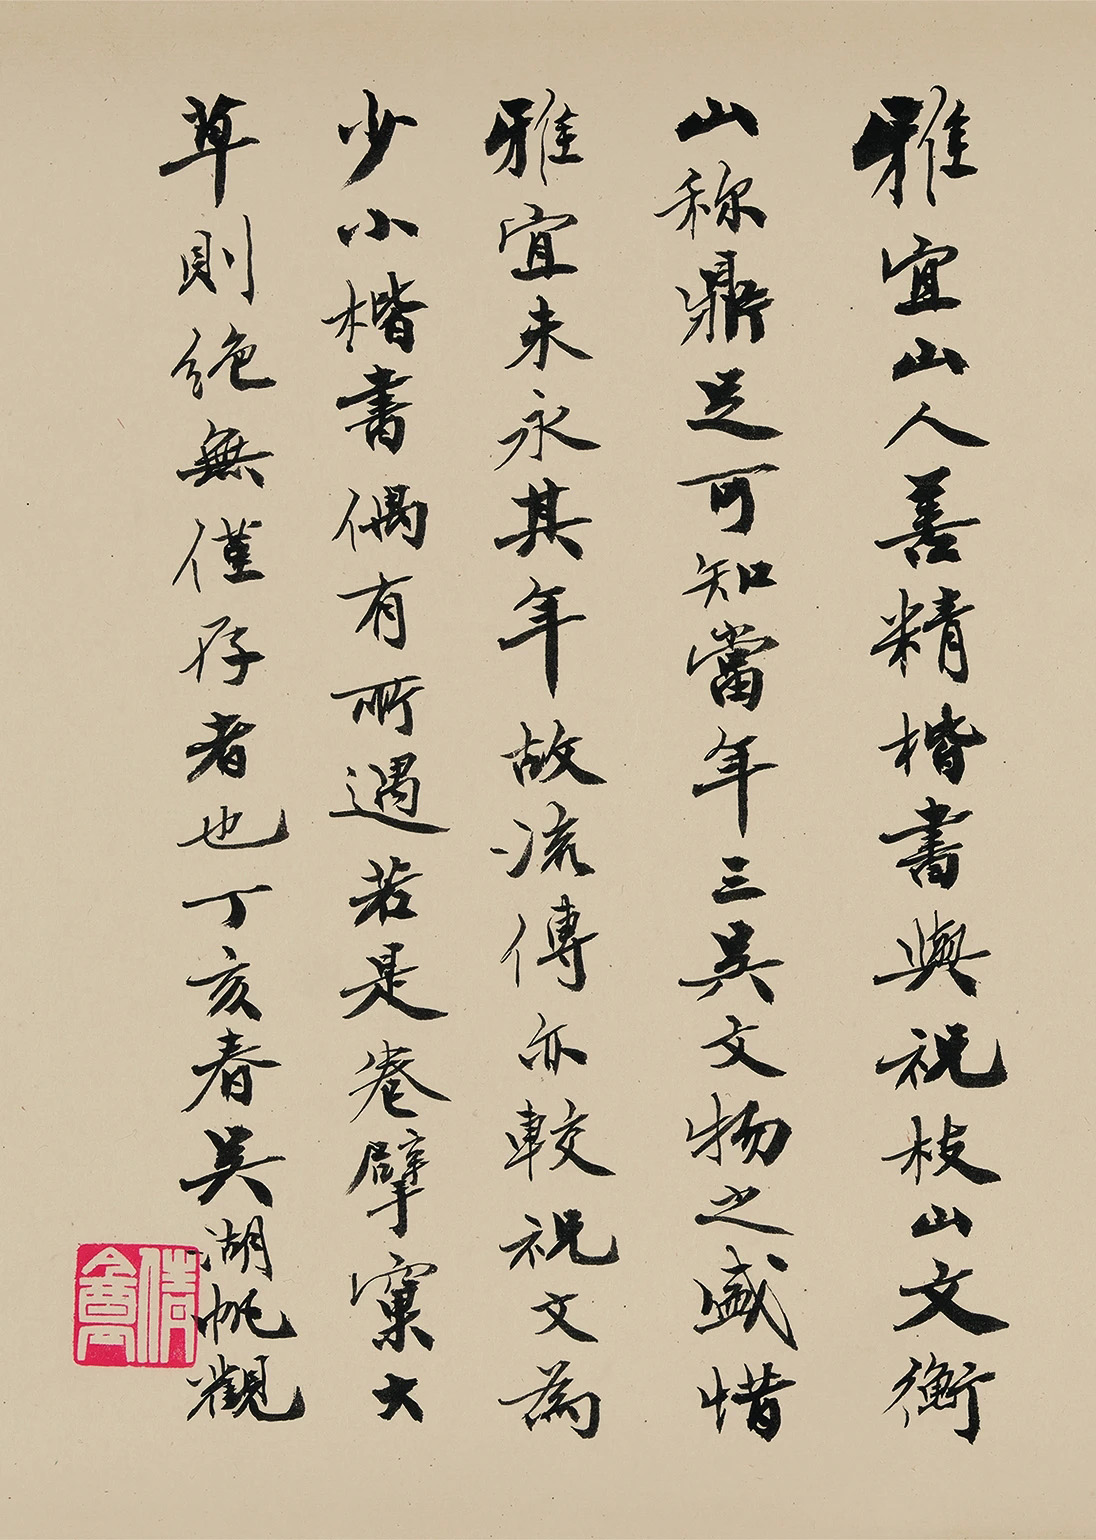 雅宜山人善精楷書與祝枝山文衡
山称鼎足可知當年三吳文物之盛惜
雅宜未永其年故流傳亦較祝文為
少小楷書偶有所遇若是卷擘窠大
草則絶無僅存者也丁亥春吳湖帆觀
倩盦